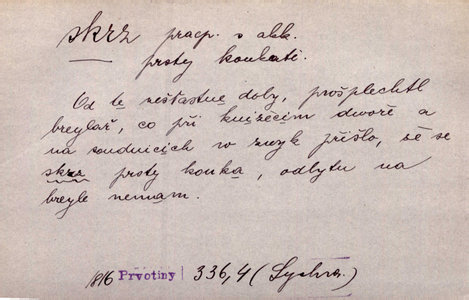 skrz pracp. s akk.
prsty koukati.
Od té nešťastné doby, prošplechtl
breylař, co při knížecím dvoře a
na soudnicích w zwyk přišlo, že se
skrz prsty kouká, odbytu na
breyle nemám.
1816 Prvotiny 336,4 (Sychra.)